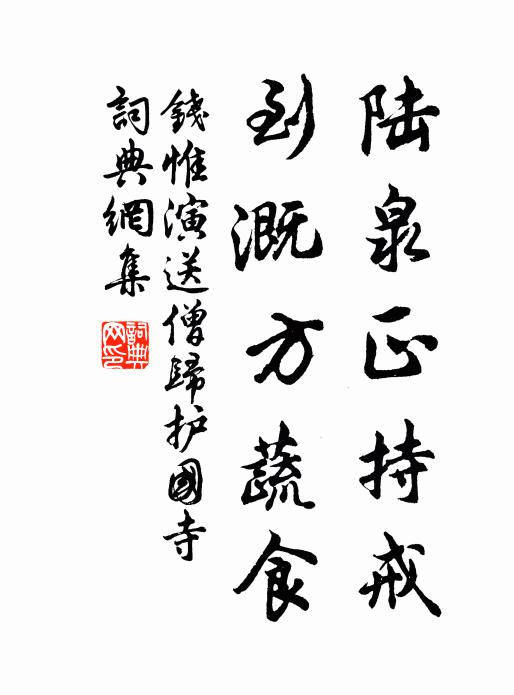 陆泉正持戒
到溉方蔬食
錢惟演送僧歸护國寺
詞典網集
詞典网印